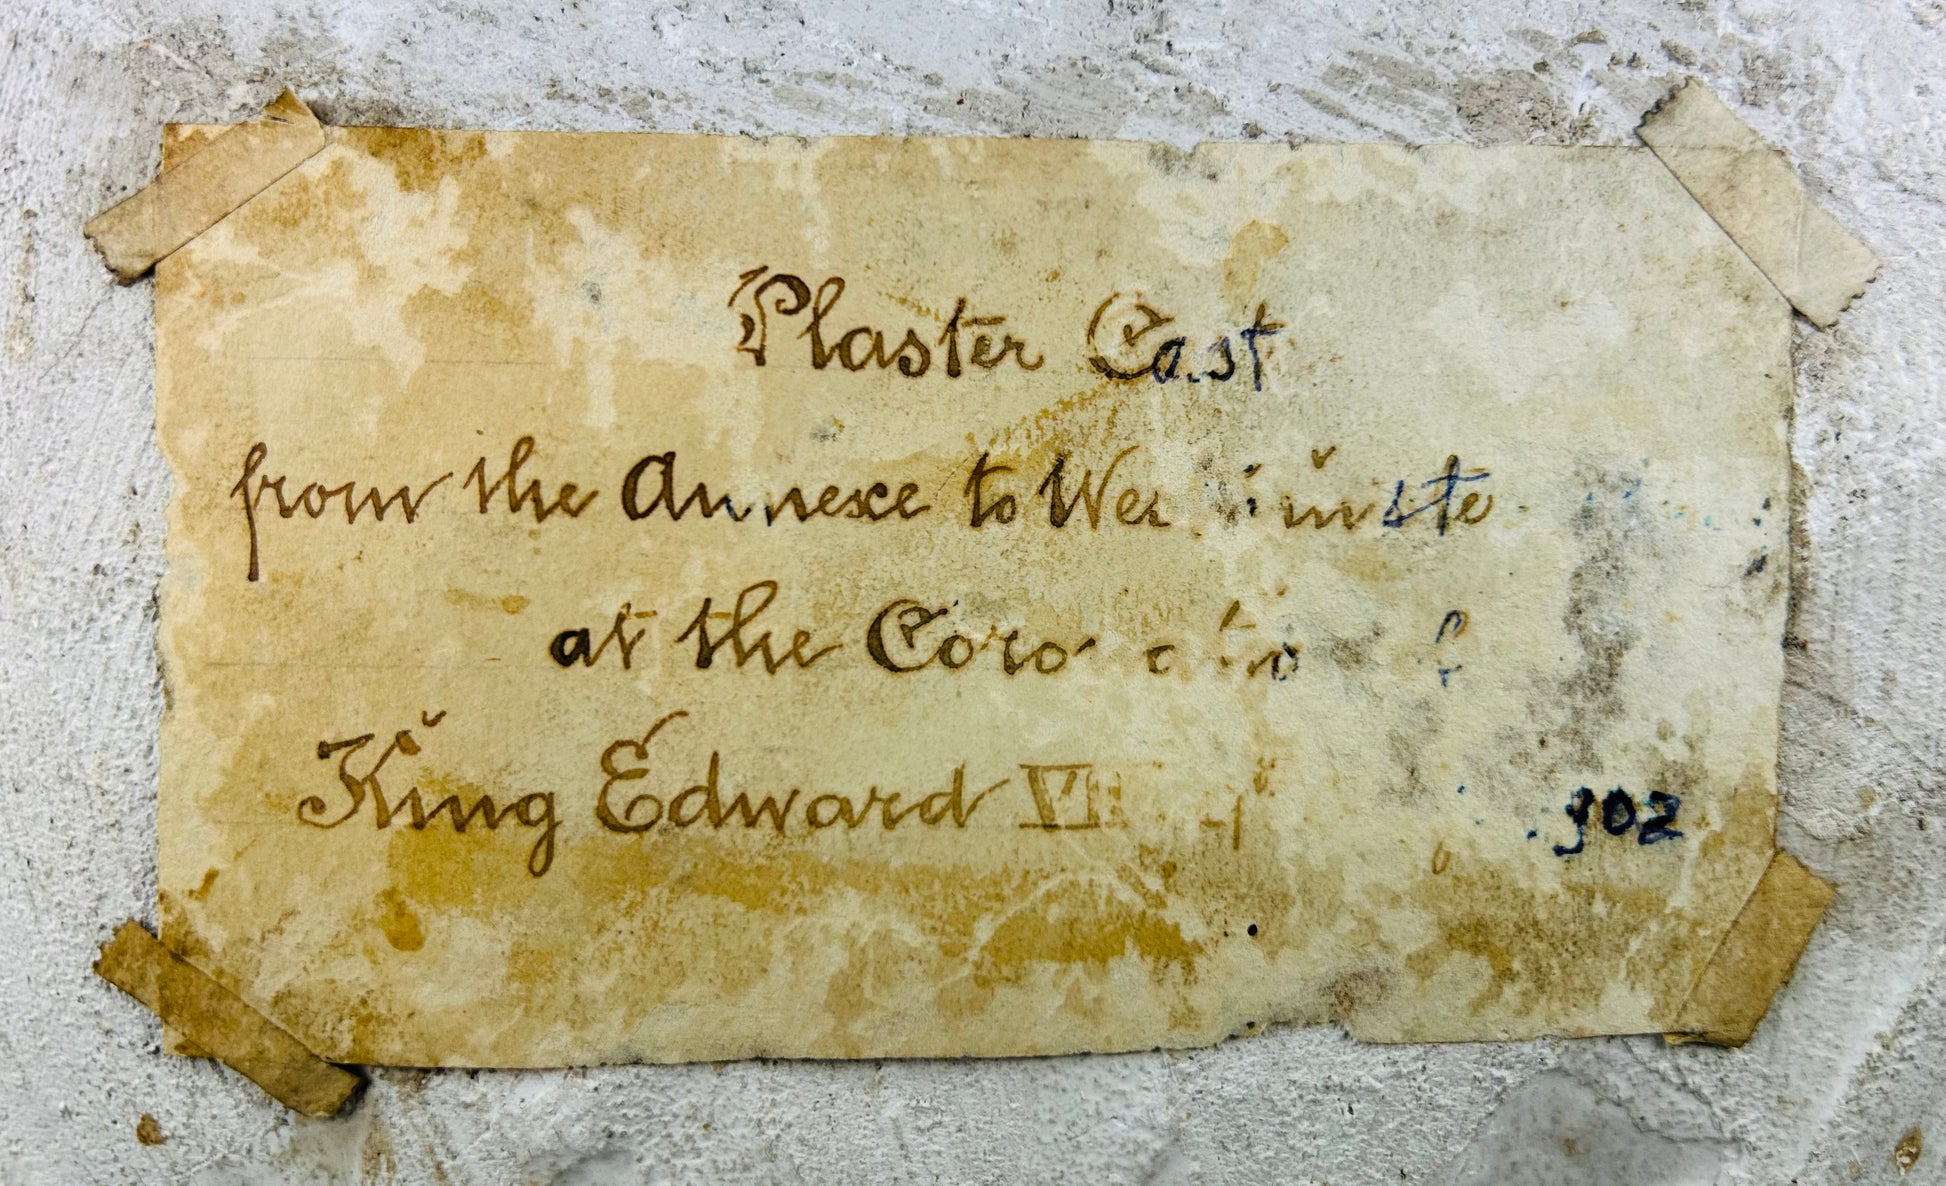 Plaster Cast
from the Annexe to Westminste
at the Coronatio f
King Edward VII 902